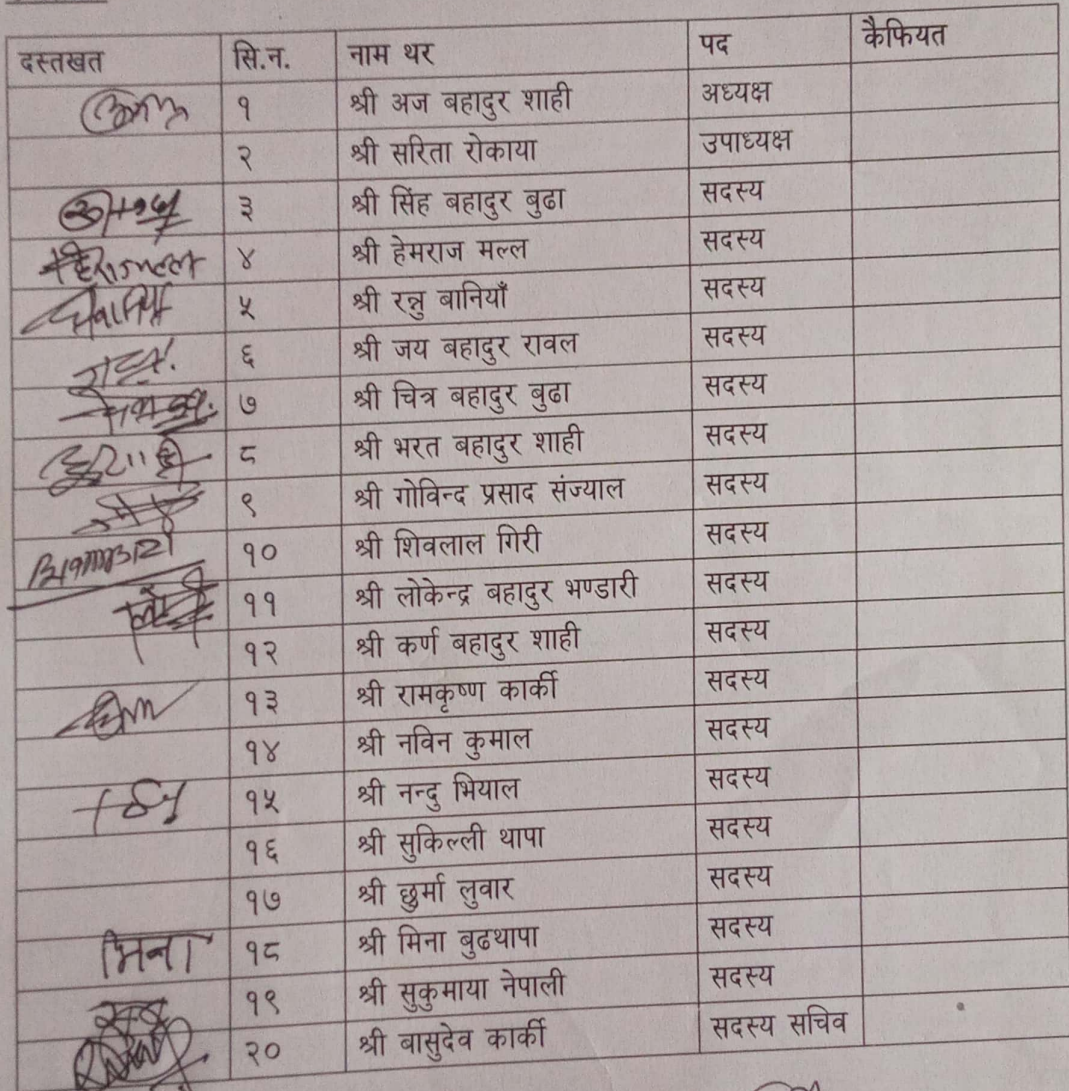 दस्तखत सि.न. नाम थर पद कैफियत
१ श्री अज बहादुर शाही अध्यक्ष
२ श्री सरिता रोकाया उपाध्यक्ष
३ श्री सिंह बहादुर बुढा सदस्य
४ श्री हेमराज मल्ल सदस्य
५ श्री रन्नु बानियाँ सदस्य
६ श्री जय बहादुर रावल सदस्य
७ श्री चित्र बहादुर बुढा सदस्य
८ श्री भरत बहादुर शाही सदस्य
९ श्री गोविन्द प्रसाद संज्याल सदस्य
१० श्री शिवलाल गिरी सदस्य
११ श्री लोकेन्द्र बहादुर भण्डारी सदस्य
१२ श्री कर्ण बहादुर शाही सदस्य
१३ श्री रामकृष्ण कार्की सदस्य
१४ श्री नविन कुमाल सदस्य
१५ श्री नन्दु भियाल सदस्य
१६ श्री सुकिल्ली थापा सदस्य
१७ श्री छुर्मा लुवार सदस्य
मिना १८ श्री मिना बुढथापा सदस्य
१९ श्री सुकुमाया नेपाली सदस्य
२० श्री बासुदेव कार्की सदस्य सचिव